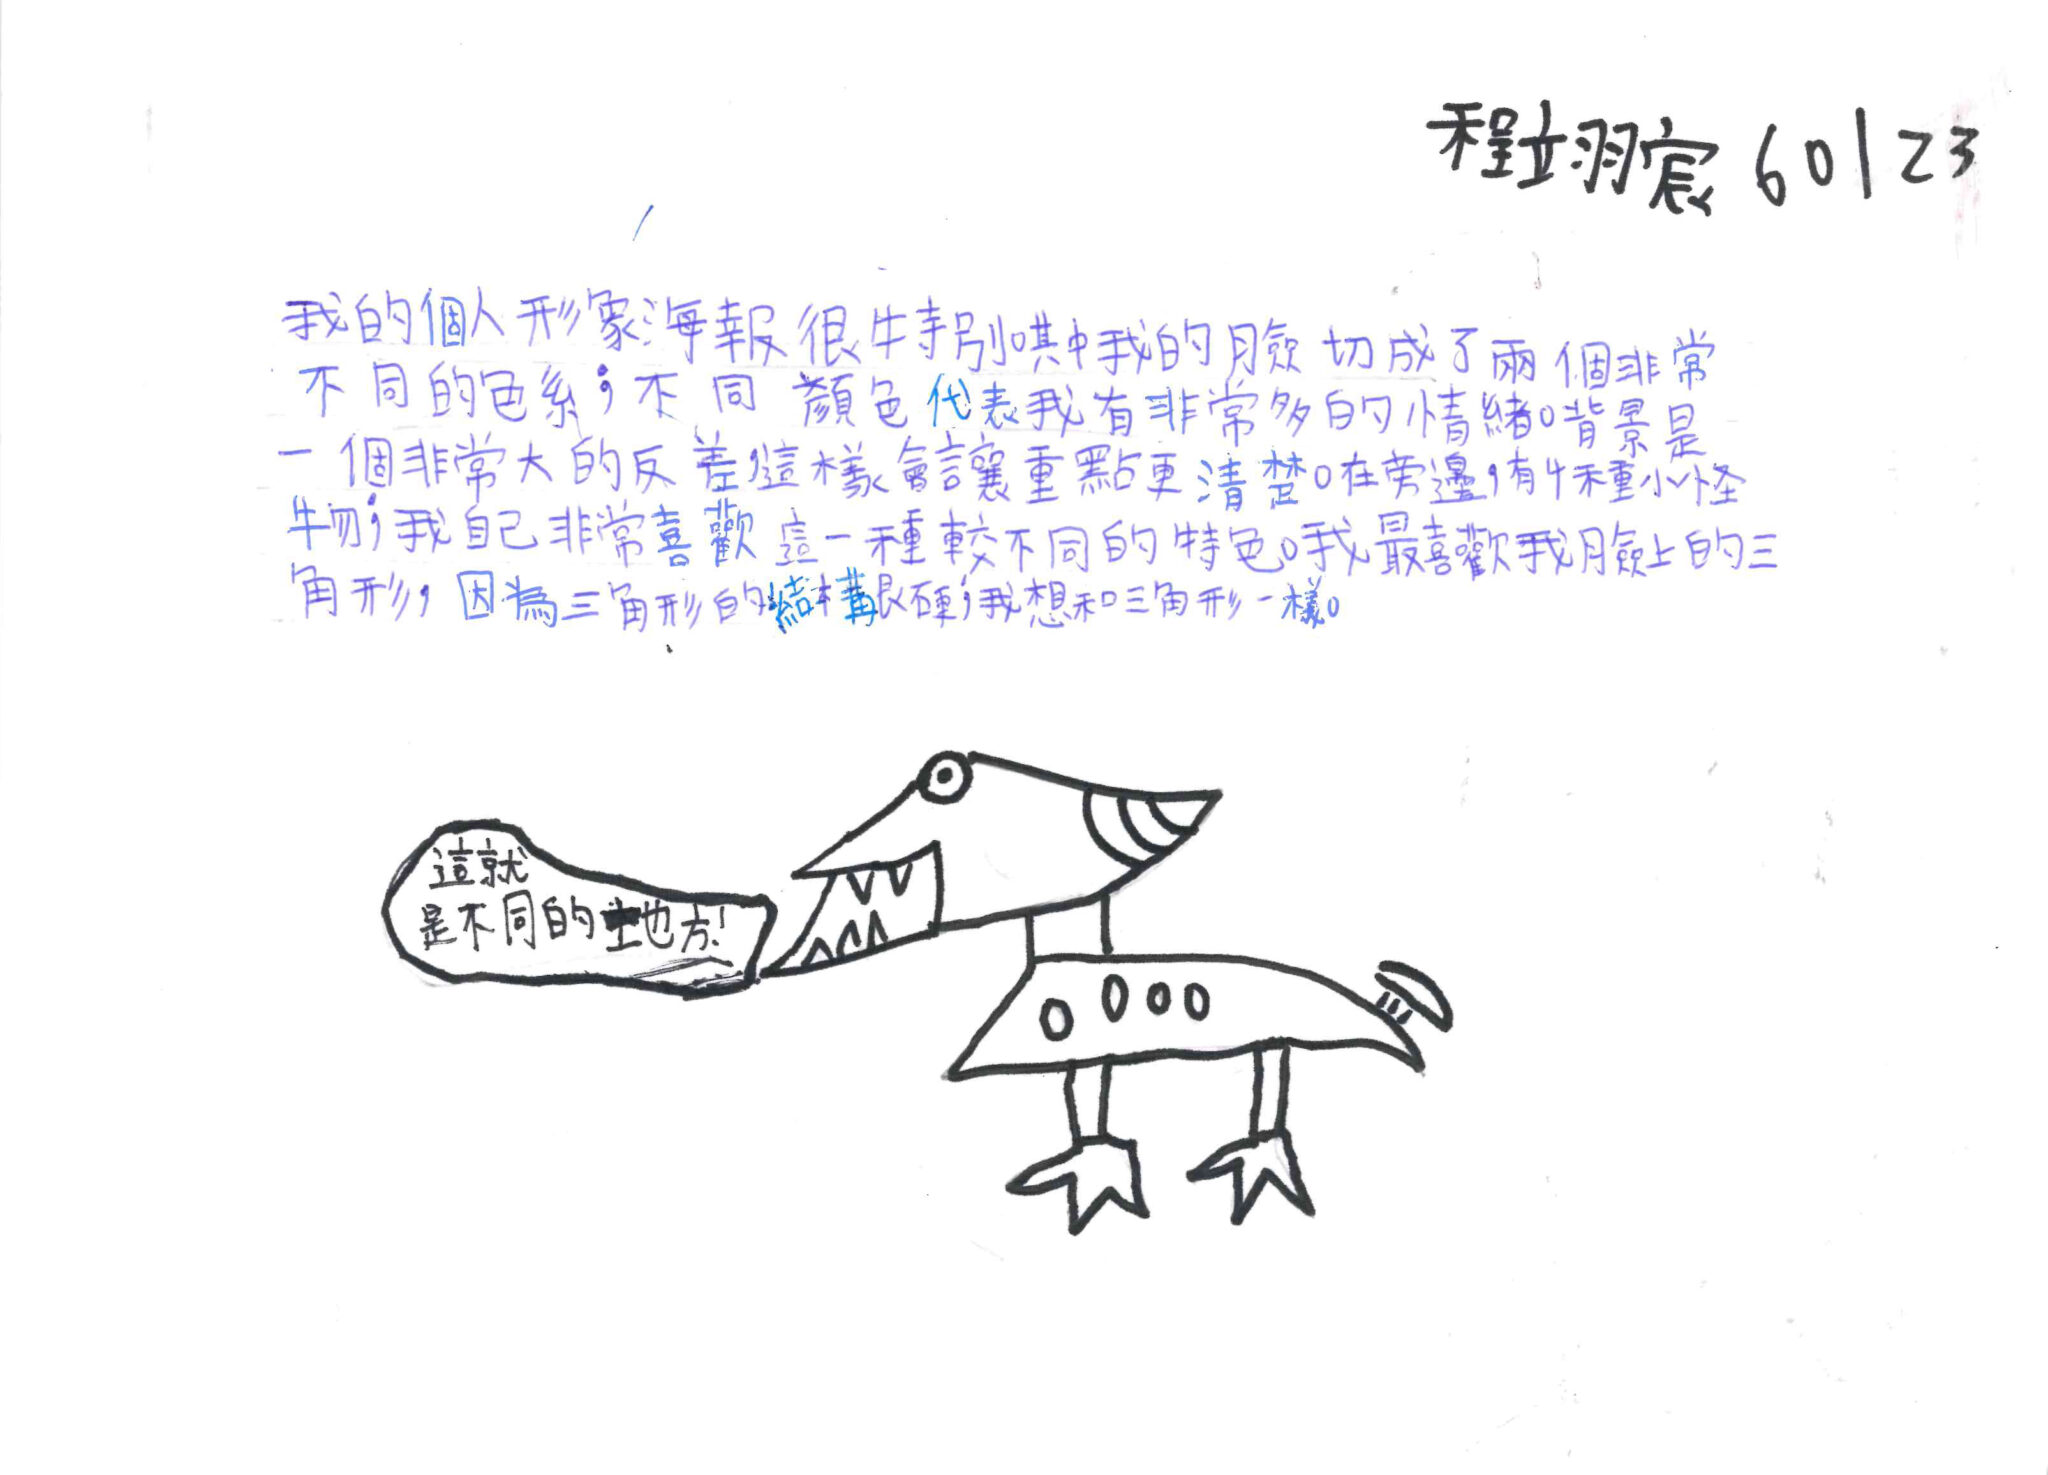 程翊宸 60123
我的個人形象海報很特別哄中我的臉切成了兩個非常
不同的色系；不同顏色代表我有非常多的情緒。背景是
一個非常大的反差，這樣會讓重點更清楚。在旁邊，有4種小怪
物；我自己非常喜歡這一種較不同的特色。我最喜歡我臉上的三
角形，因為三角形的結構很硬；我想和三角形一樣。
這就
是不同的地方！